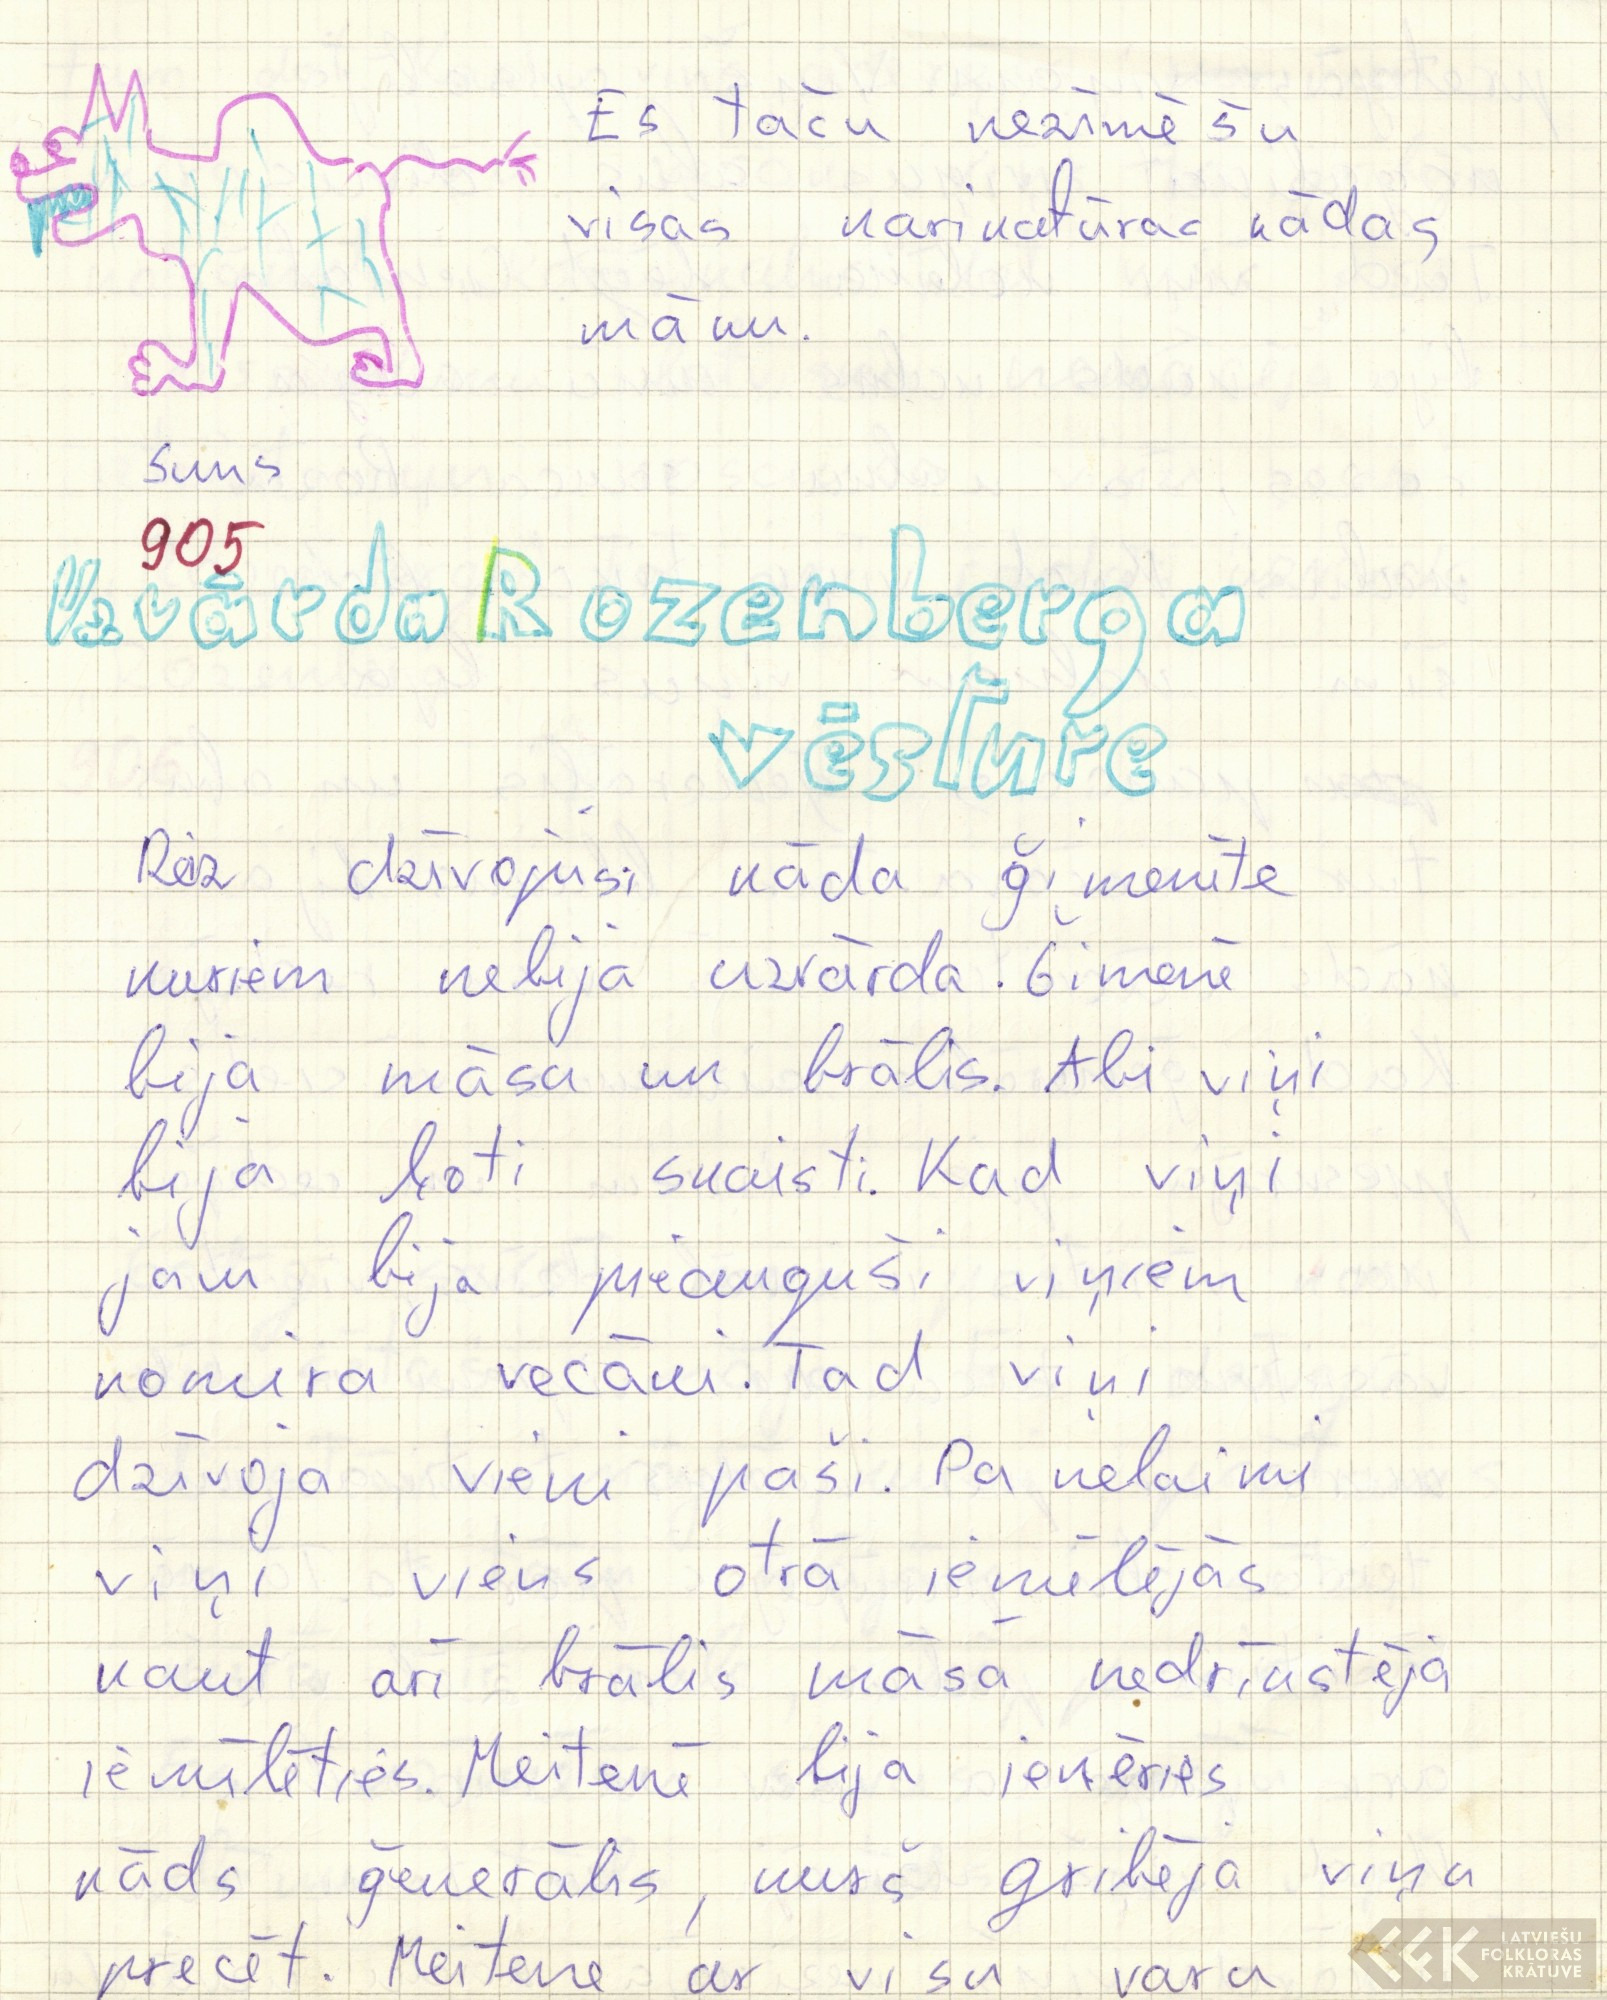 Es taču nezīmēšu
visas karikatūras kādas
māku.
Suns
905
Uzvārda Rozenberga
vēsture
Reiz dzīvojusi kāda ģimenīte
kuriem nebija uzvārda. Ģimenē
bija māsa un brālis. Abi viņi
bija ļoti skaisti. Kad viņi
jau bija pieauguši viņiem
nomira vecāki. Tad viņi
dzīvoja vieni paši. Pa nelaimi
viņi viens otrā iemīlējās
kaut arī brālis māsā nedrīkstēja
iemīlēties. Meitenē bija ieķēries
kāds ģenerālis, kurš gribēja viņu
precēt. Meitene ar visu varu
LATVIEŠU
FOLKLORAS
KRĀTUVE